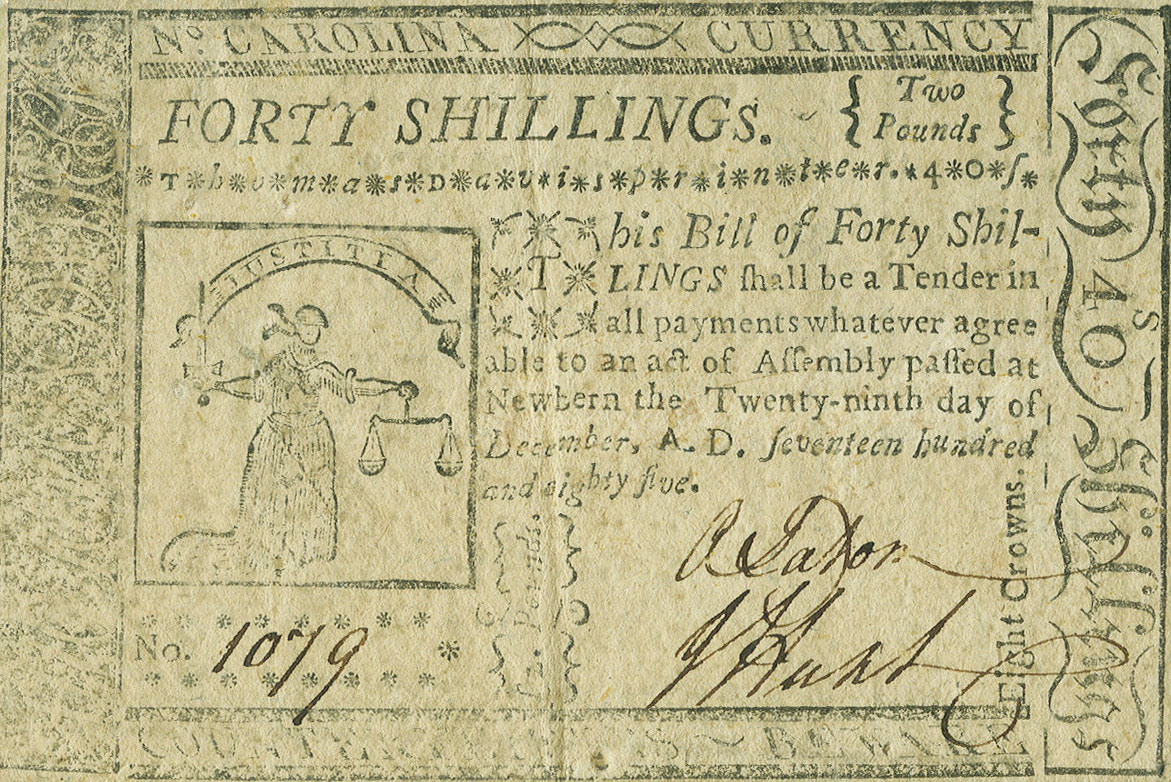 No. CAROLINA CURRENCY
FORTY SHILLINGS.
{ Two Pounds }
*T*h*o*m*a*s*D*a*v*i*s*p*r*i*n*t*e*r.*4*0*ſ*
This Bill of Forty Shil-
LINGS ſhall be a Tender in
all payments whatever agree
able to an act of Aſſembly paſſed at
Newbern the Twenty-ninth day of
December, A. D. ſeventeen hundred
and eighty five.
JUSTITIA
No. 1079
Pounds.
J Hunt
Eight Crowns.
Forty 40S Shillings
BEWARE